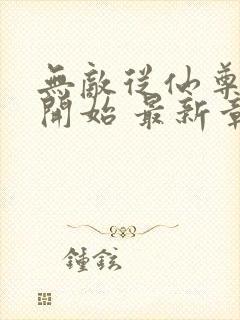 無敵從仙尊
開始 最新章
鍾鉉